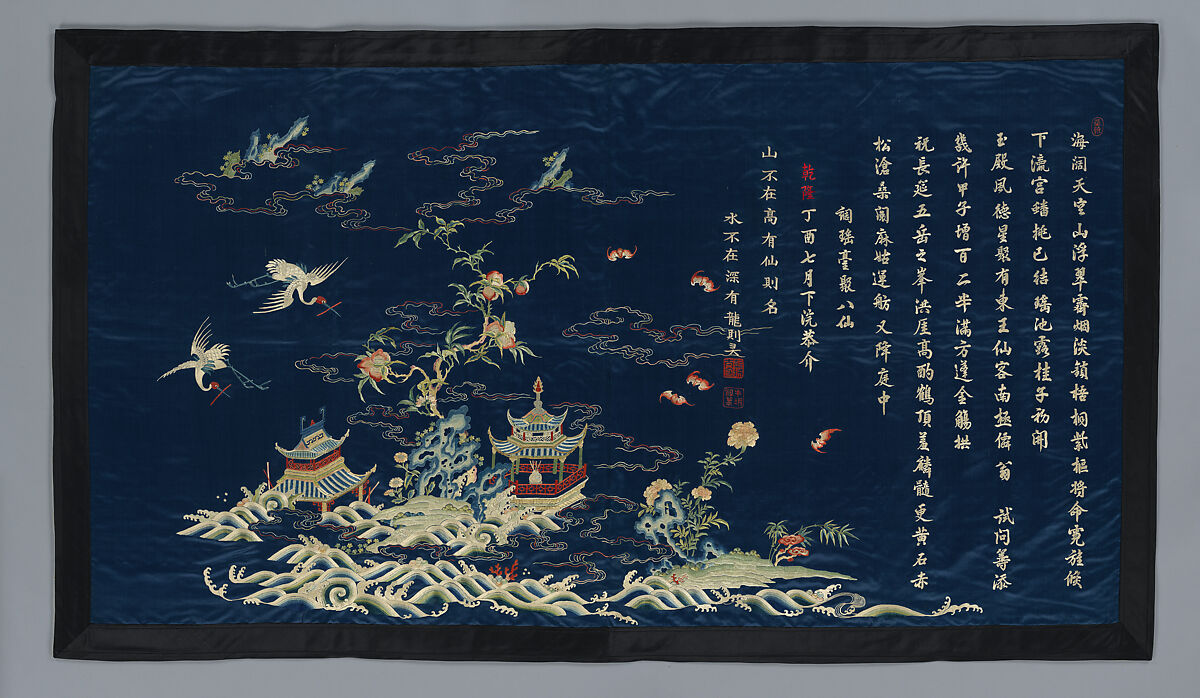 海闊天空山浮翠霽烟淡梧桐紫樞将命霓旌候
下宫蟠桃已结瑶池露桂子初開
玉殿風德星聚有東王仙客南極偉翁 試问籌添
幾许甲子增百二半滿方蓬金觴拱
祝長延五岳之峯洪崖高酌鶴頂羞麟髓更黄石赤
松滄桑閱麻姑運舫又降庭中
調瑤臺聚八仙
乾隆丁酉七月下浣恭介
山不在高有仙則名
水不在深有龍則灵